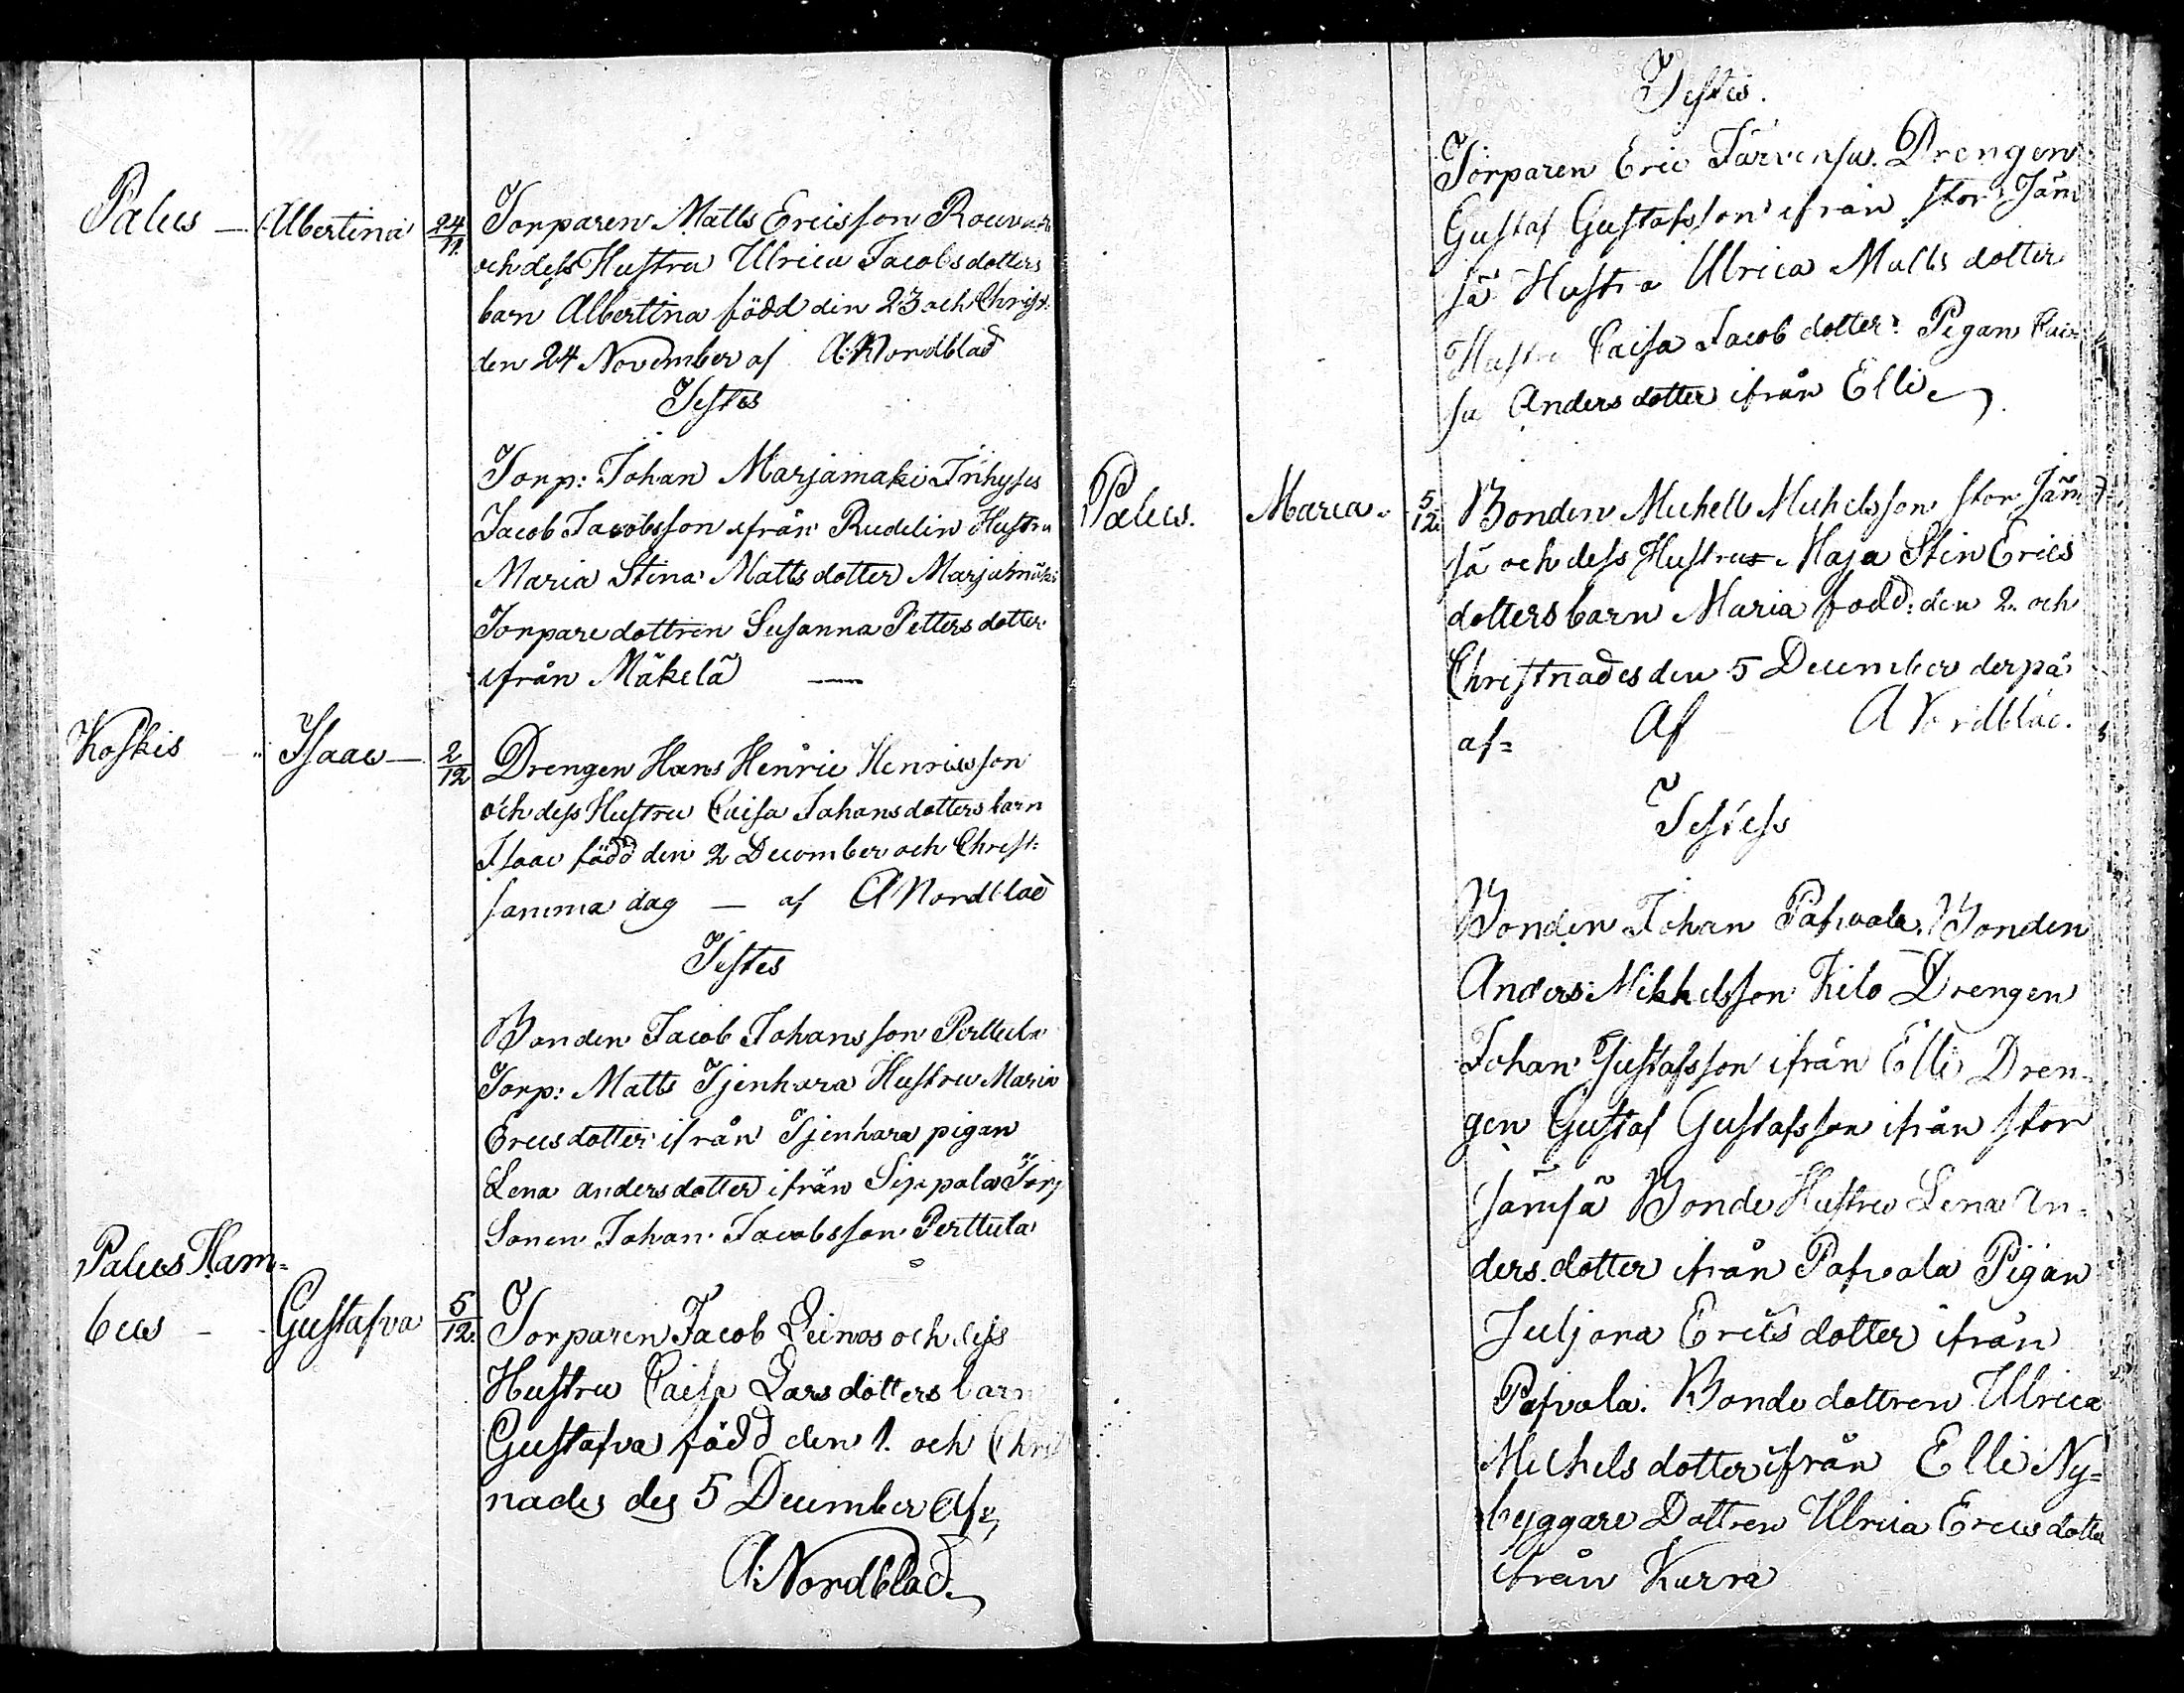 Palus — Albertina 24/11 Torparen Matts Ericsson Rouvar
och dess Hustru Ulrica Jacobsdotters
barn Albertina född den 23 och Christ:
den 24 November af A: Nordblad
Testes
Torp: Johan Marjamaki Inhyses
Jacob Jacobsson ifrån Rudelin Hustru
Maria Stina Matts dotter Marjamäki
Torpare dottren Susanna Petters dotter
ifrån Mäkelä —
Koskis — Isaac — 2/12 Drengen Hans Henric Henricsson
och dess Hustru Caisa Johansdotters barn
Isaac född den 2 December och Christ:
samma dag — af A Nordblad
Testes
Bonden Jacob Johansson Perttula
Torp: Matts Tjenhara Hustru Maria
Ericsdotter ifrån Tjenhara pigan
Lena andersdotter ifrån Sippala Torp
Sonen Johan Jacobsson Perttula
Palus Kam=
bus — Gustafva 5/12 Torparen Jacob Leinos och dess
Hustru Caisa Larsdotters barn
Gustafva född den 1. och Christ
nades des 5 December Af
A: Nordblad
Testes.
Torparen Eric Järvensu. Drengen
Gustaf Gustafsson ifrån Stor Jäm
sä Hustru Ulrica Matts dotter
Hustru Caisa Jacob dotter: Pigan Cai
sa Anders dotter ifrån Elli
Palus. Maria. 5/12 Bonden Michell Michelsson Stor Jäm
sä och dess Hustrus Maja Stin Erics
dotters barn Maria född: den 2. och
Christnades den 5 December derpå
af= Af A Nordblad.
Testess
Bonden Johan Pafvola. Bonden
Anders Mikkelsson Kilo Drengen
Johan Gustafsson ifrån Elli Dren=
gen Gustaf Gustafsson ifrån Stor
Jämsä Bonde Hustru Lena An=
ders dotter ifrån Pafvola Pigan
Juljana Erics dotter ifrån
Pafvola. Bonde dottren Ulrica
Michels dotter ifrån Elli Ny=
byggare Dottren Ulrica Ericsdotter
ifrån Kurra